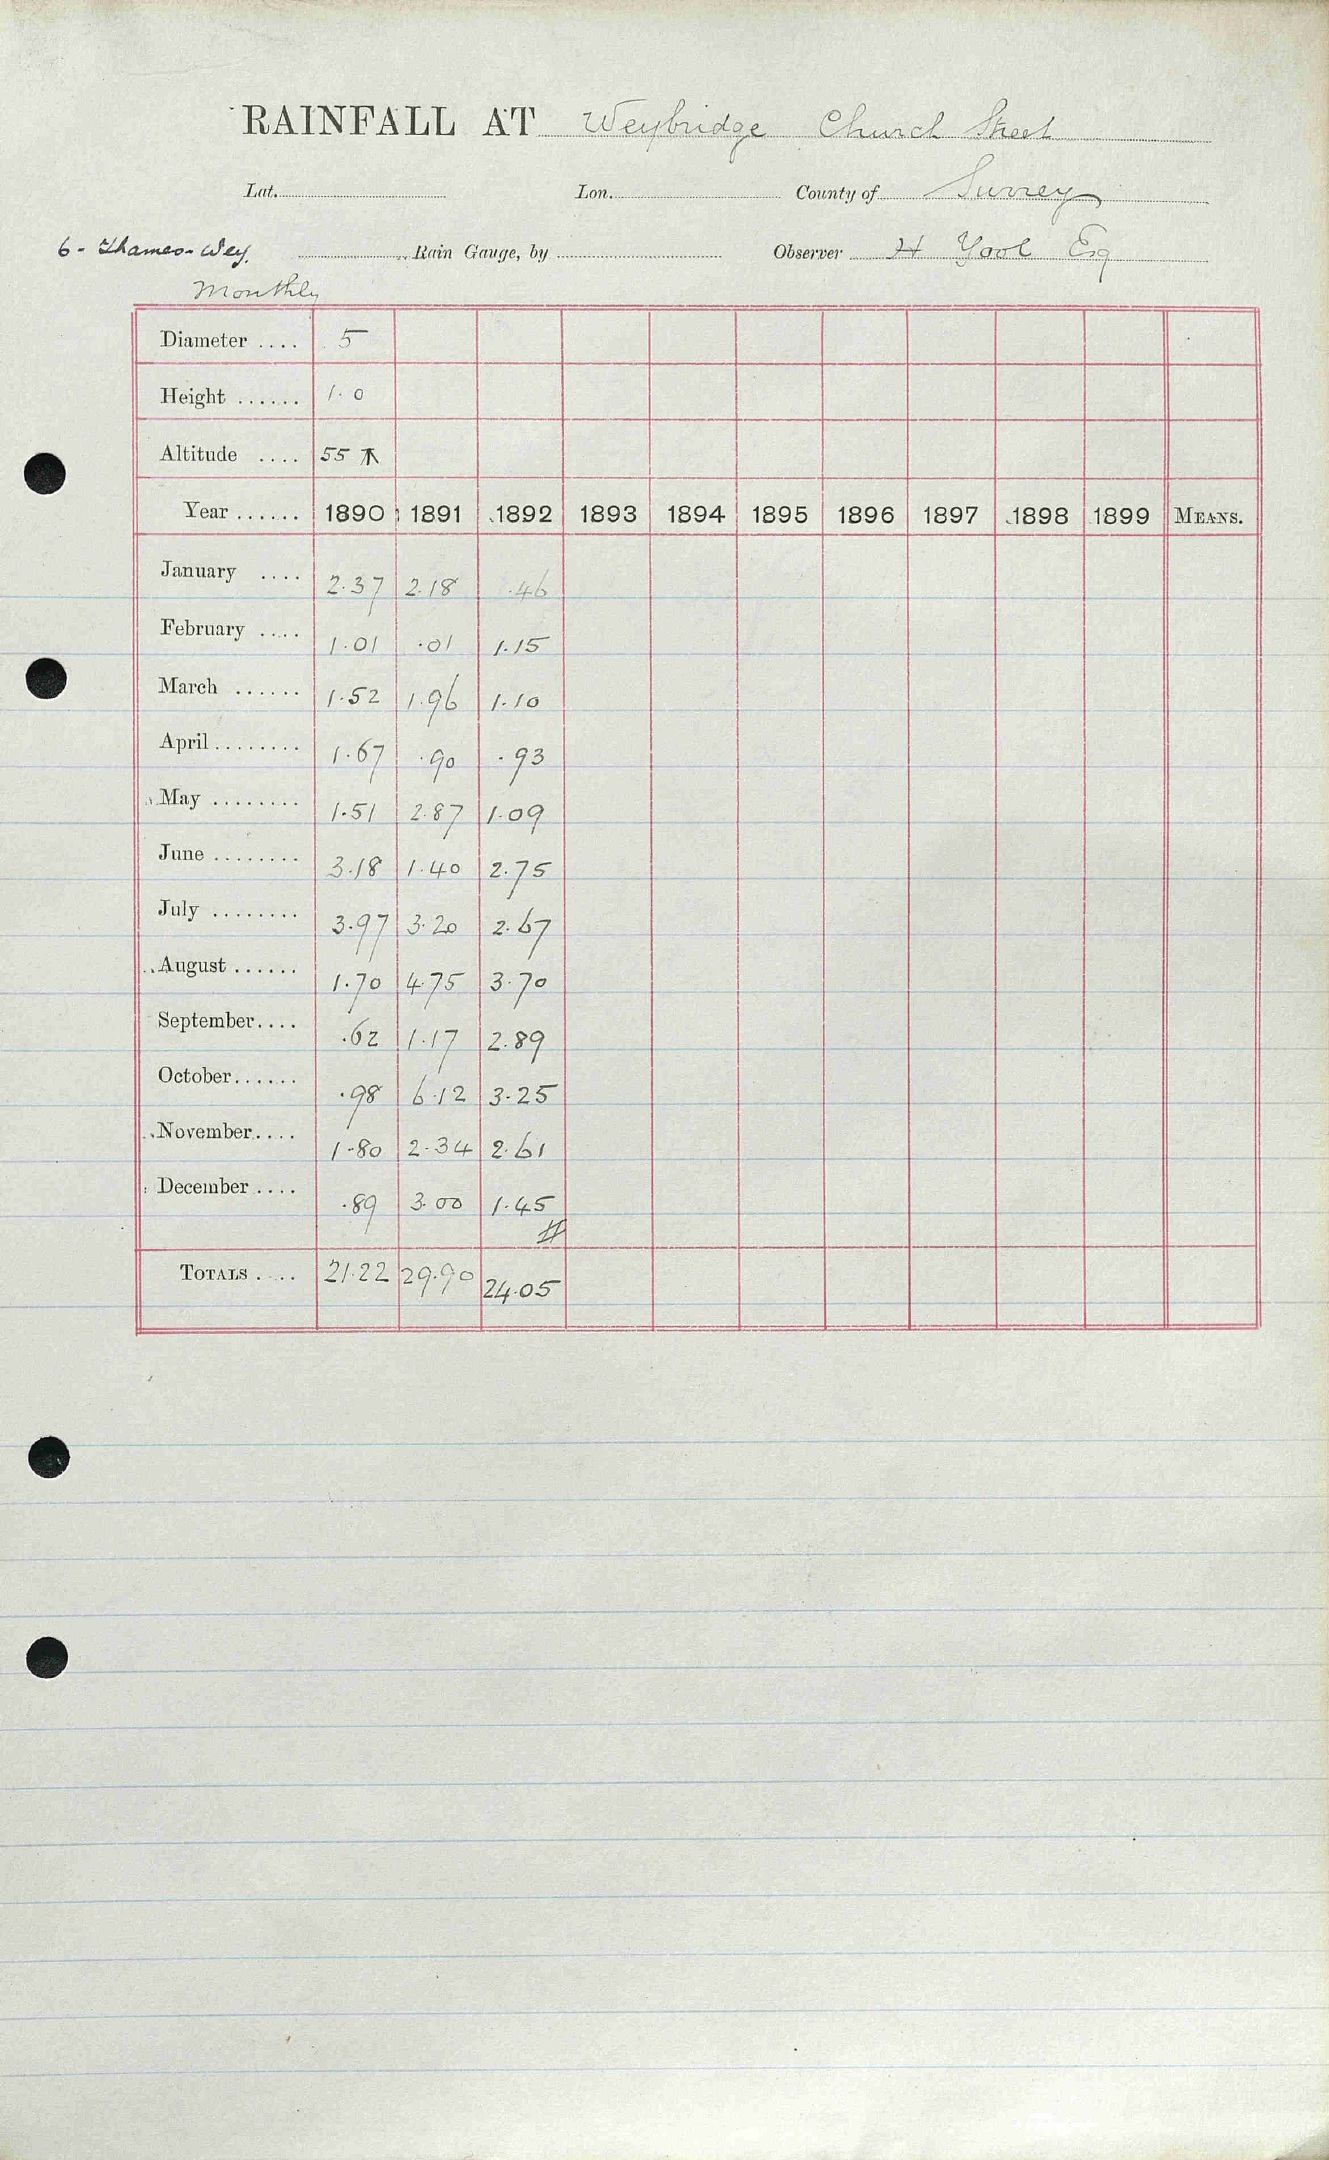 RAINFALL AT Weybridge Church Street
Lat. Lon. County of Surrey
6 - Thames - Wey. Rain Gauge, by Observer H Yool Esq
Monthly
Diameter .... 5
Height ...... 1.0
Altitude .... 55
Year ...... 1890 1891 1892 1893 1894 1895 1896 1897 1898 1899 MEANS.
January .... 2.37 2.18 .46
February .... 1.01 .01 1.15
March ...... 1.52 1.96 1.10
April ........ 1.67 .90 .93
May ........ 1.51 2.87 1.09
June ........ 3.18 1.40 2.75
July ........ 3.97 3.20 2.67
August ...... 1.70 4.75 3.70
September.... .62 1.17 2.89
October...... .98 6.12 3.25
November.... 1.80 2.34 2.61
December .... .89 3.00 1.45
TOTALS .... 21.22 29.90 24.05